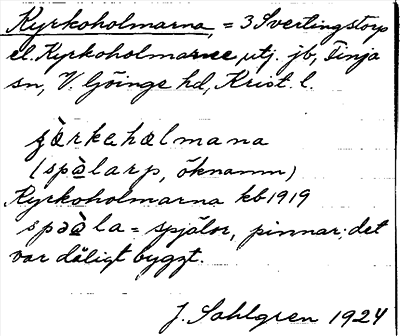 Kyrkoholmarna, = 3 Svertingstorp
el. Kyrkoholmarne, utj. jb, Finja
sn, V. Göinge hd, Krist. l.
çær̀kehælmana
(spælarp, öknamn)
Kyrkoholmarna kb 1919
spəæ̀la = spjälor, pinnar; det
var dåligt byggt.
J. Sahlgren 1924